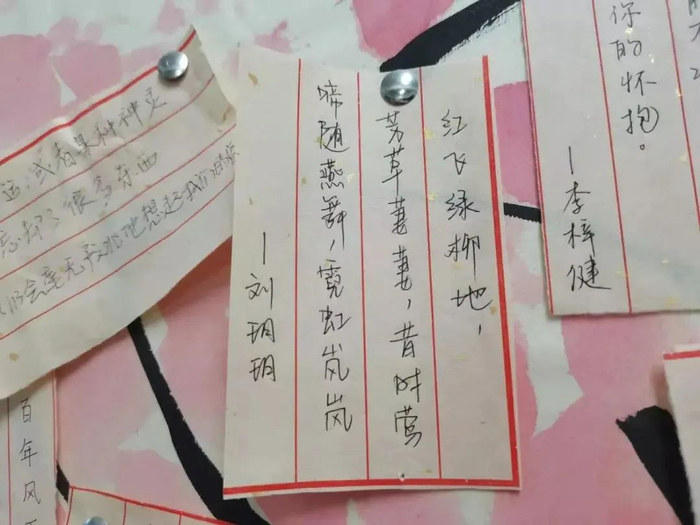 你的怀抱。
—李梓健
红飞绿柳地，
芳草萋萋，昔时莺
啼随燕舞，霓虹岚岚
—刘玥玥
或者某种神灵
忘却了很多东西
会毫无 地想起我们
百年风